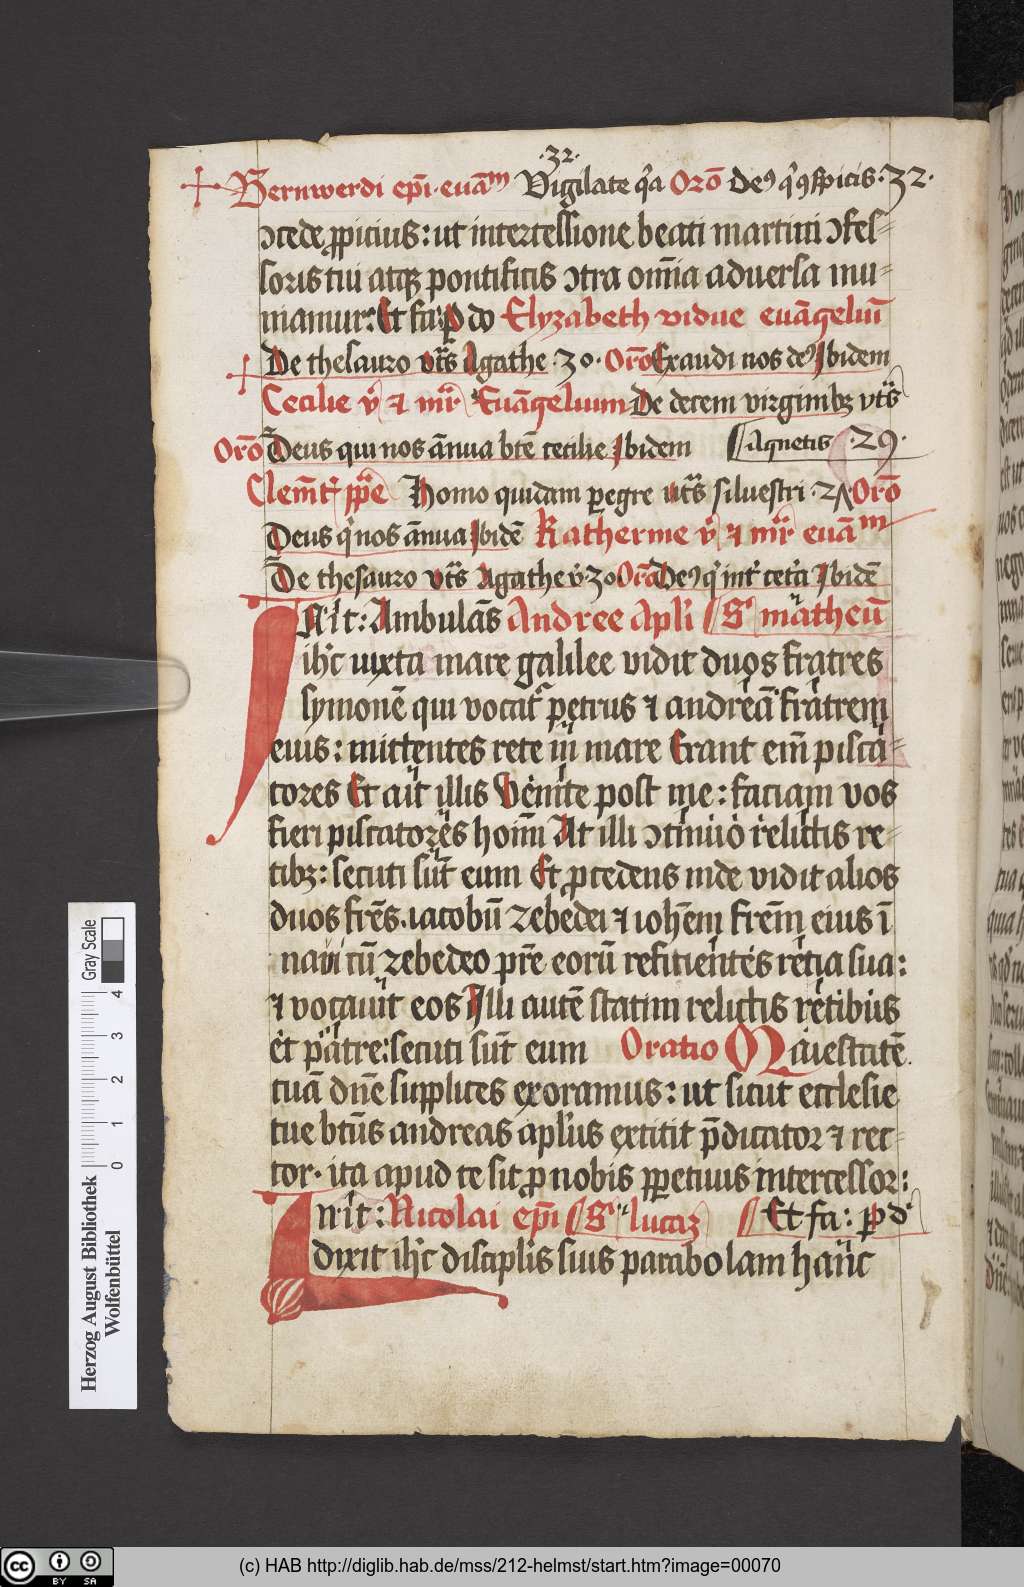 .32.
Bernwerdi ep̄i. euāᵐ Vigilate q̇a Orō deꝰ q̇ ꝯspicis. 32.
ↄcede ꝓpicius: ut intercessione beati martini ↄfes⸗
soris tui atqꝫ pontificis ↄtra om̄ia aduersa mu⸗
niamur: Et fa: p do Elyzabeth vidue euāgeliū
De thesauro vt̄s Agathe. 30. Orō Exaudi nos deꝰ Ibidem
Cecilie v̄ ⁊ mr̄ Euāgelium De decem virginibꝫ vt̄s
Orō Deus qui nos ānua btē cecilie Ibidem Agnetis. 29.
Clem̄t ppe Homo quidam peregre vt̄s siluestri. 24 Orō
Deus q̇ nos ānua Ibidē Katherine v̄ ⁊ mr̄ euāᵐ
De thesauro vt̄s Agathe v̄. 30 Orō Deꝰ q̇ int̄ cet̄a Ibidē
In īt: Ambulās Andree Apl̄i S. matheū
ih̄c iuxta mare galilee vidit duos fratres
symonē qui vocat̄ petrus ⁊ andreā fratrem
eius: mittentes rete in mare Erant em̄ pisca⸗
tores Et ait illis Venite post me: faciam vos
fieri piscatores homī At illi ↄtinuo relictis re⸗
tibꝫ: secuti sūt eum Et ꝓcedens inde vidit alios
duos frēs. iacobū zebedei ⁊ ioh̄em frēm eius ī
naui cū zebedeo pr̄e eorū reficientes retia sua:
⁊ vocauit eos Illi autē statim relictis retibus
et patre: secuti sūt eum Oratio Maiestatē
tuā dn̄e supplices exoramus: ut sicut ecclesie
tue btūs andreas apl̄us extitit p̄dicator ⁊ rec⸗
tor. ita apud te sit ꝓ nobis ꝑpetuus intercessor:
In īt: Nicolai ep̄i S. lucaꝫ Et fa: p d
dixit ih̄c discipl̄is suis parabolam hanc
Herzog August Bibliothek
Wolfenbüttel
0 1 2 3 4
Gray Scale
cc BY SA
(c) HAB http://diglib.hab.de/mss/212-helmst/start.htm?image=00070